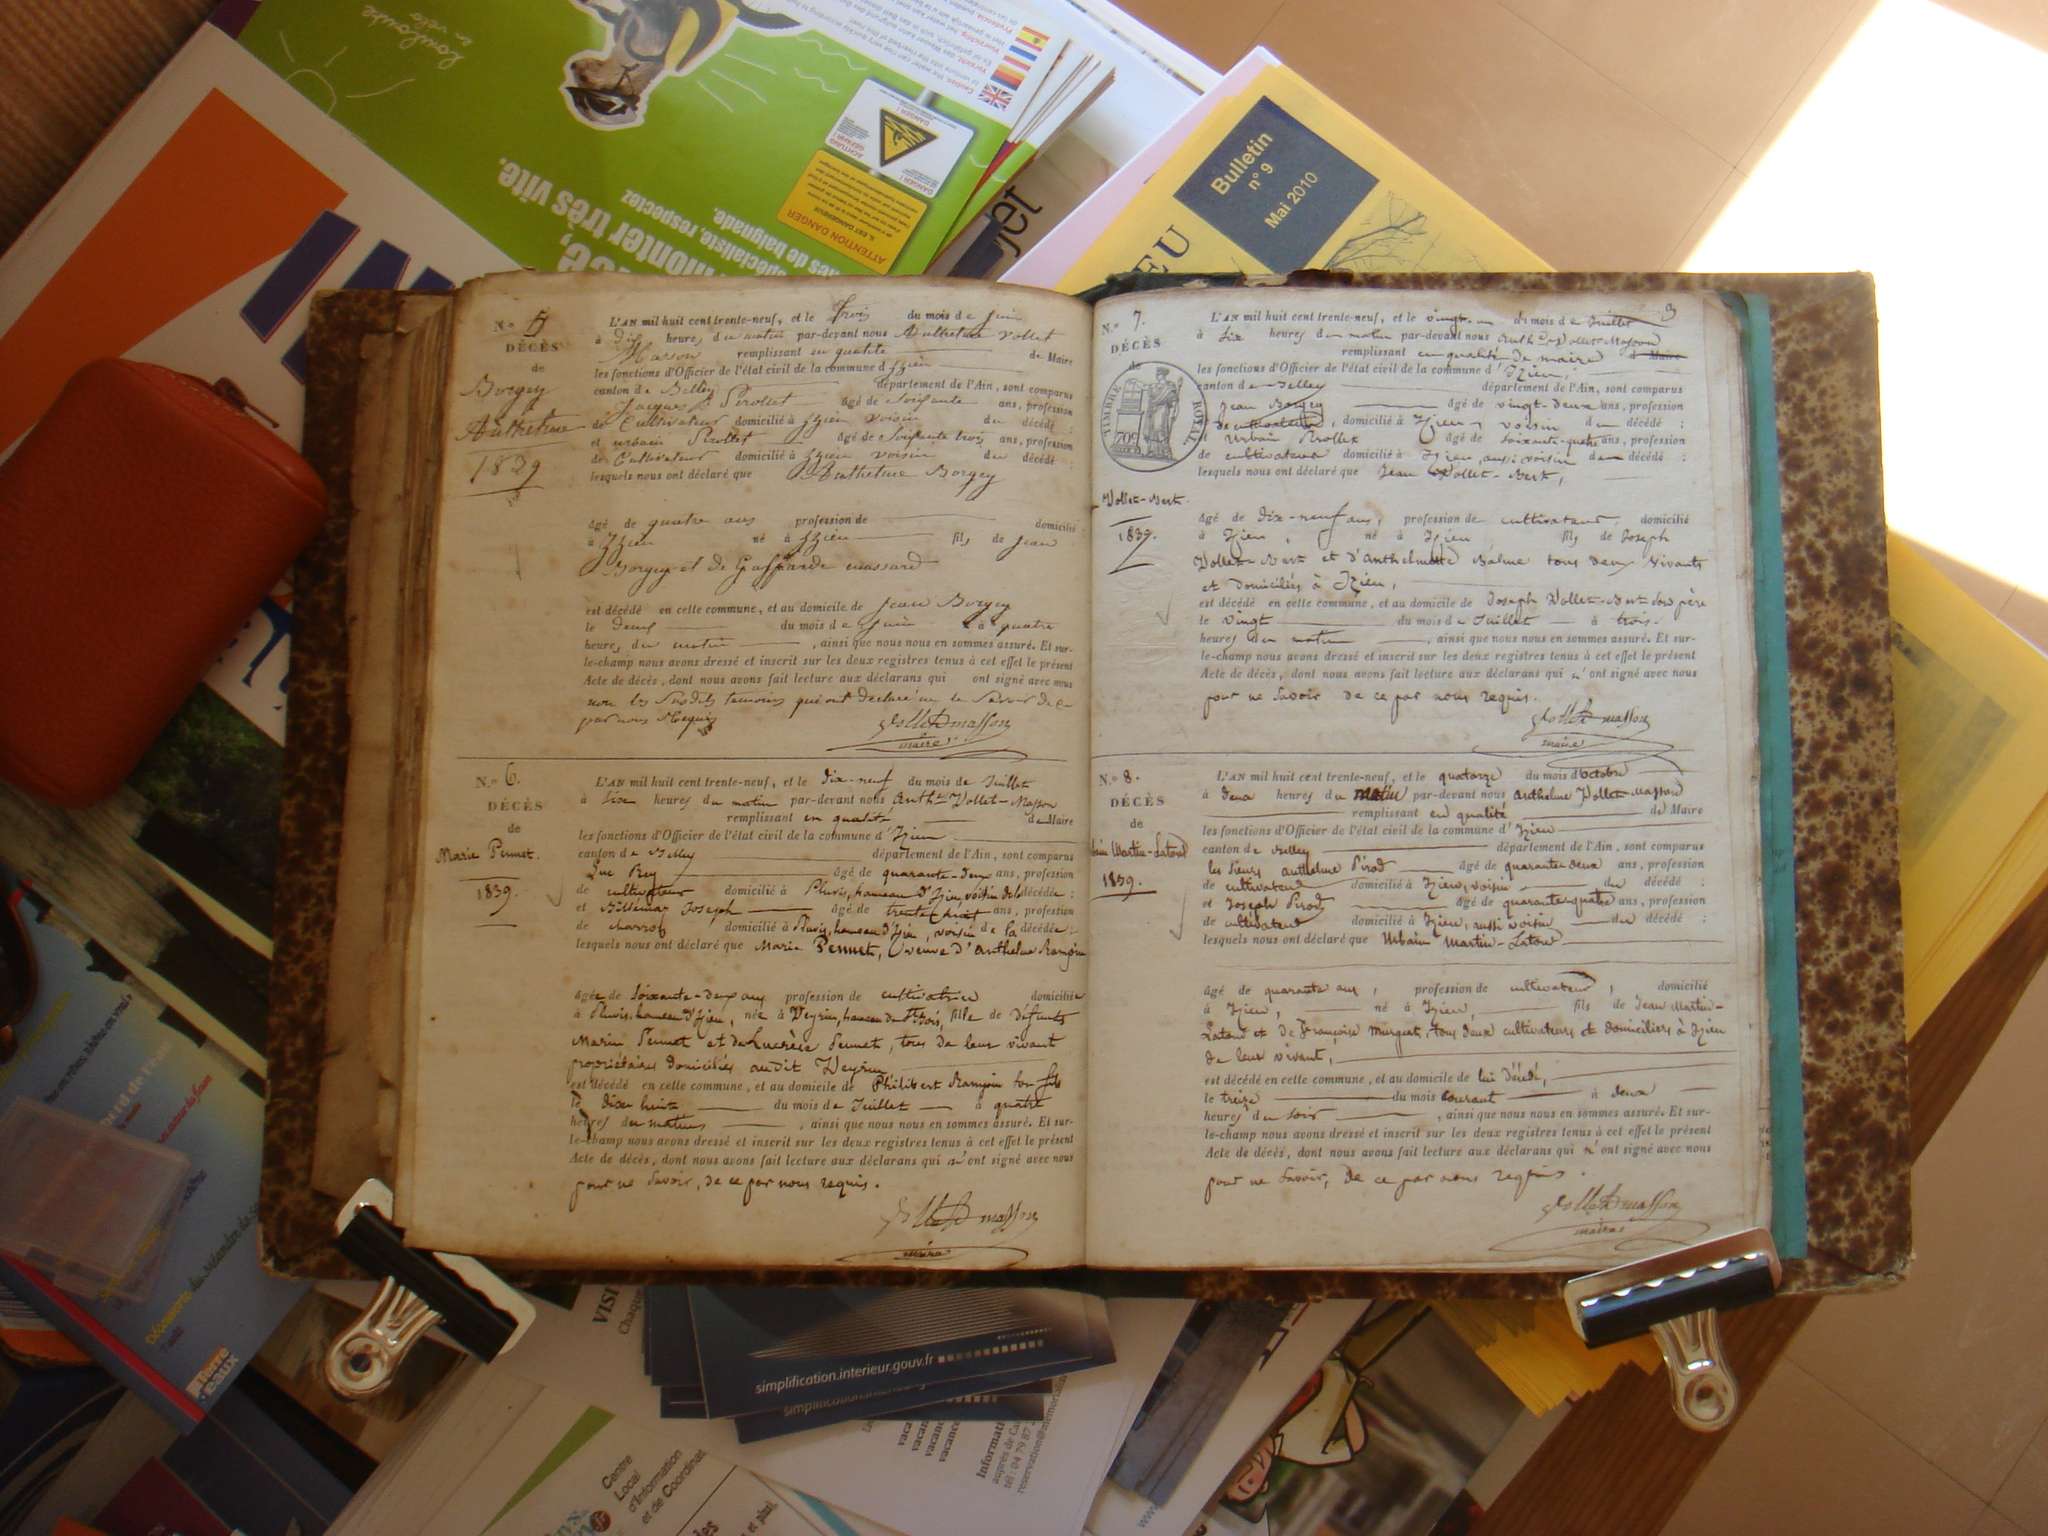 N.o 5
DÉCÈS
de
Borgey
Anthelme
1839
L'AN mil huit cent trente-neuf, et le Trois du mois de Juin
à Dix heures du matin par-devant nous Anthelme Vollet
Masson remplissant en qualité de Maire
les fonctions d'Officier de l'état civil de la commune d'Izieu
canton de Belley département de l'Ain, sont comparus
Jacques Perollet âgé de Soixante ans, profession
de Cultivateur domicilié à Izieu voisin du décédé ;
et urbain Perollet âgé de Soixante trois ans, profession
de Cultivateur domicilié à Izieu voisin du décédé ;
lesquels nous ont déclaré que Anthelme Borgey
âgé de quatre ans profession de domicilié
à Izieu né à Izieu fils de Jean
Borgey et de Gasparde massard
est décédé en cette commune, et au domicile de Jean Borgey
le deux du mois de Juin à quatre
heures du matin , ainsi que nous nous en sommes assuré. Et sur-
le-champ nous avons dressé et inscrit sur les deux registres tenus à cet effet le présent
Acte de décès, dont nous avons fait lecture aux déclarans qui ont signé avec nous
non les Susdits temoins qui ont declaré ne le Savoir de ce
par nous Requis
maire
N.o 6.
DÉCÈS
de
Marie Pennet.
1839.
L'AN mil huit cent trente-neuf, et le dix-neuf du mois de Juillet
à six heures du matin par-devant nous Anth.e Vollet-Masson
remplissant en qualité de Maire
les fonctions d'Officier de l'état civil de la commune d'Izieu
canton de Belley département de l'Ain, sont comparus
Luc Rey âgé de quarante-deux ans, profession
de cultivateur domicilié à Pluvis, hameau d'Izieu, voisin de la décédée ;
et Joseph âgé de trente huit ans, profession
de charron domicilié à Pluvis, hameau d'Izieu, voisin de la décédée ;
lesquels nous ont déclaré que Marie Pennet, veuve d'Anthelme
âgée de soixante-deux ans profession de cultivatrice domiciliée
à Pluvis, hameau d'Izieu, née à Veyrin, hameau de fille de défunts
Marin Pennet et de Lucrèce Pennet, tous de leur vivant
propriétaires domiciliés audit Veyrin
est décédé en cette commune, et au domicile de Philibert son fils
le dix huit du mois de Juillet à quatre
heures du matin , ainsi que nous nous en sommes assuré. Et sur-
le-champ nous avons dressé et inscrit sur les deux registres tenus à cet effet le présent
Acte de décès, dont nous avons fait lecture aux déclarans qui n'ont signé avec nous
pour ne savoir, de ce par nous requis.
maire
3
N.o 7.
DÉCÈS
de
TIMBRE ROYAL
70c
Vollet-Bert.
1839.
L'AN mil huit cent trente-neuf, et le vingt-un du mois de Juillet
à six heures du matin par-devant nous Anth.e Vollet-Masson
remplissant en qualité de maire d Maire
les fonctions d'Officier de l'état civil de la commune d'Izieu,
canton de Belley département de l'Ain, sont comparus
Jean Borgey âgé de vingt-deux ans, profession
de cultivateur, domicilié à Izieu, voisin du décédé ;
et Urbain Perollet âgé de soixante-quatre ans, profession
de cultivateur domicilié à Izieu, aussi voisin du décédé ;
lesquels nous ont déclaré que Jean Vollet-Bert,
âgé de dix-neuf ans, profession de cultivateur, domicilié
à Izieu, né à Izieu fils de Joseph
Vollet-Bert et d'Anthelmette Balme tous deux vivants
et domiciliés à Izieu,
est décédé en cette commune, et au domicile de Joseph Vollet-Bert son père
le vingt du mois de Juillet à trois
heures du matin , ainsi que nous nous en sommes assuré. Et sur-
le-champ nous avons dressé et inscrit sur les deux registres tenus à cet effet le présent
Acte de décès, dont nous avons fait lecture aux déclarans qui n'ont signé avec nous
pour ne savoir de ce par nous requis.
maire
N.o 8.
DÉCÈS
de
Martin-Latoud
1839.
L'AN mil huit cent trente-neuf, et le quatorze du mois d'octobre
à deux heures du matin par-devant nous Anthelme Vollet-Masson
remplissant en qualité de Maire
les fonctions d'Officier de l'état civil de la commune d'Izieu
canton de Belley département de l'Ain, sont comparus
les sieurs Anthelme Pirod âgé de quarante deux ans, profession
de cultivateur domicilié à Izieu, voisin du décédé ;
et Joseph Pirod âgé de quarante quatre ans, profession
de cultivateur domicilié à Izieu, aussi voisin du décédé ;
lesquels nous ont déclaré que Urbain Martin-Latoud
âgé de quarante ans, profession de cultivateur, domicilié
à Izieu, né à Izieu, fils de Jean Martin-
Latoud et de Françoise Murguet, tous deux cultivateurs et domiciliés à Izieu
de leur vivant,
est décédé en cette commune, et au domicile de lui décédé,
le treize du mois courant à deux
heures du soir , ainsi que nous nous en sommes assuré. Et sur-
le-champ nous avons dressé et inscrit sur les deux registres tenus à cet effet le présent
Acte de décès, dont nous avons fait lecture aux déclarans qui n'ont signé avec nous
pour ne savoir, de ce par nous requis.
maire
Bulletin
n° 9
Mai 2010
EU
jet
monter très vite.
spécialiste, respectez
nes de baignade.
ATTENTION DANGER
DANGER !
ACHTUNG
GEFAHR !
Vorsicht
Caution
Terre
d'eaux
simplification.interieur.gouv.fr
VISI
Chaque
Centre
Local
d'Information
et de Coordinat
Informati
auprès de Ca
tél : 04 79 87